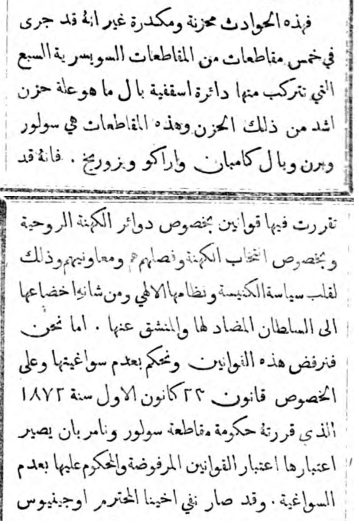 فهذه الحوادث محزنة ومكدرة غير انهُ قد جرى
في خمس مقاطعات من المقاطعات السويسرية السبع
التي تتركب منها دائرة اسقفية بال ما هو علة حزن
اشد من ذلك الحزن وهذه المقاطعات هي سولور
وبرن وبال كامبان واراكو وبزوريخ . فانهُ قد
تقررت فيها قوانين بخصوص دوائر الكهنة الروحية
وبخصوص انتخاب الكهنة وفصلهم هم ومعاونيهم وذلك
لقلب سياسة الكنيسة ونظامها الالهي ومن شانهِ اخضاعها
الى السلطان المضاد لها والمنشق عنها . اما نحن
فنرفض هذه القوانين ونحكم بعدم سواغيتها وعلى
الخصوص قانون ٢٣ كانون الاول سنة ١٨٧٢
الذي قررتهُ حكومة مقاطعة سولور ونامر بان يصير
اعتبارها اعتبار القوانين المرفوضة والمحكوم عليها بعدم
السواغية . وقد صار نفي اخينا المحترم اوجينيوس